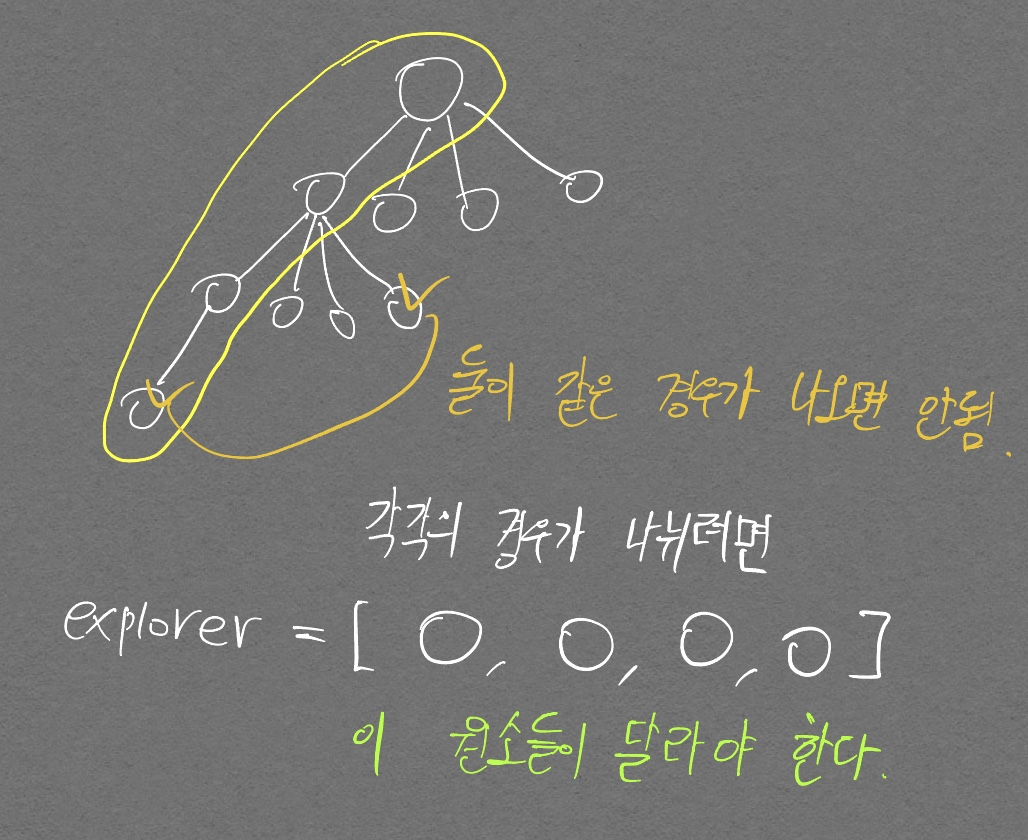 둘이 같은 경우가 나오면 안됨.
각각의 경우가 나뉘려면
explorer = [ O, O, O, O ]
이 원소들이 달라야 한다.